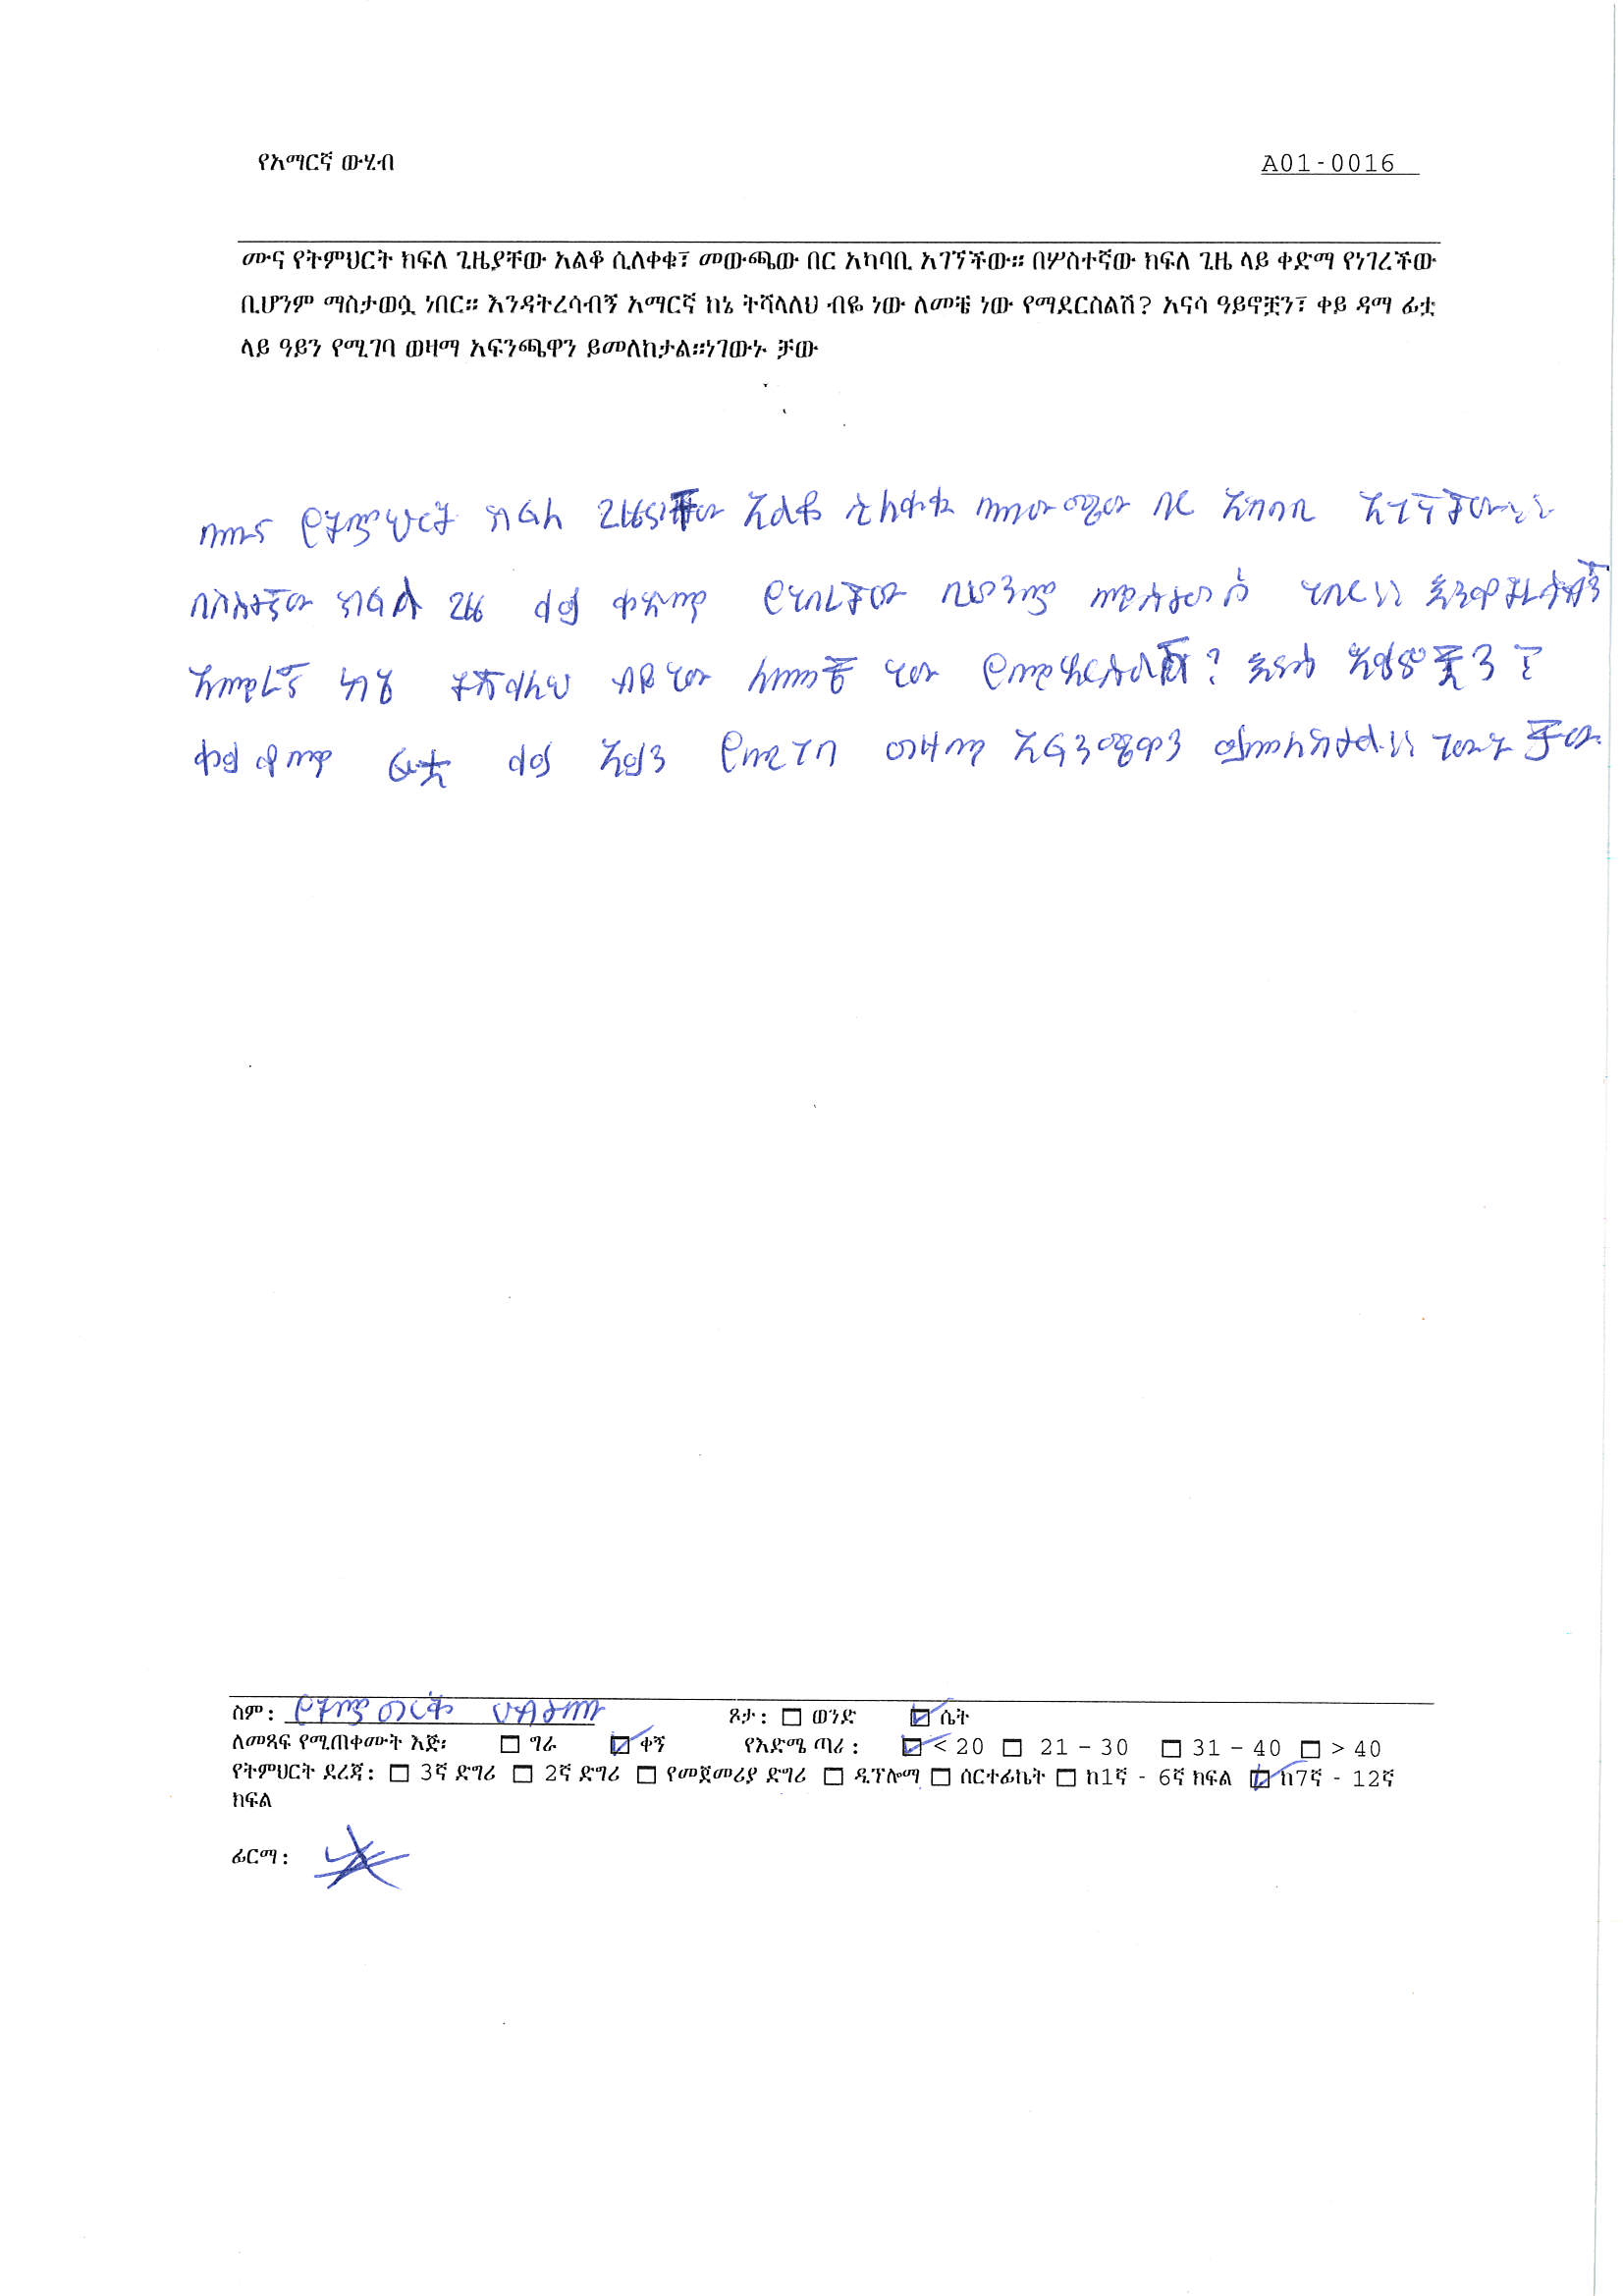 የአማርኛ ውሂብ A01-0016
ሙና የትምህርት ክፍለ ጊዜያቸው አልቆ ሲለቀቁ፣ መውጫው በር አካባቢ አገኘችው። በሦስተኛው ክፍለ ጊዜ ላይ ቀድማ የነገረችው
ቢሆንም ማስታወሷ ነበር። እንዳትረሳብኝ አማርኛ ከኔ ትሻላለህ ብዬ ነው ለመቼ ነው የማደርስልሽ? አናሳ ዓይኖቿን፣ ቀይ ዳማ ፊቷ
ላይ ዓይን የሚገባ ወዛማ አፍንጫዋን ይመለከታል።ነገውኑ ቻው
በሙና የትምህርት ክፍለ ጊዜያቸው አልቆ ሲለቀቁ መውጫው በር አካባቢ አገኘችው።
በስስተኛው ክፍለ ጊዜ ላይ ቀድማ የነገረችው ቢሆንም ማስታወሷ ነበር። እንዳትረሳብኝ
አማርኛ ከኔ ትሻላለህ ብዬ ነው ለመቼ ነው የማደርስልሽ? እናሳ አይኖቿን ፣
ቀይ ዳማ ፊቷ ላይ አይን የሚገባ ወዛማ አፍንጫዋን ይመለከታል። ነገውኑ ቻው
ስም: የትምወርት ሀብታሙ ጾታ: ☐ ወንድ ☑ ሴት
ለመጻፍ የሚጠቀሙት እጅ: ☐ ግራ ☑ ቀኝ የእድሜ ጣሪ: ☑ < 20 ☐ 21 – 30 ☐ 31 – 40 ☐ > 40
የትምህርት ደረጃ: ☐ 3ኛ ድግሪ ☐ 2ኛ ድግሪ ☐ የመጀመሪያ ድግሪ ☐ ዲፕሎማ ☐ ሰርተፊኬት ☐ ከ1ኛ - 6ኛ ክፍል ☑ ከ7ኛ - 12ኛ
ክፍል
ፊርማ: